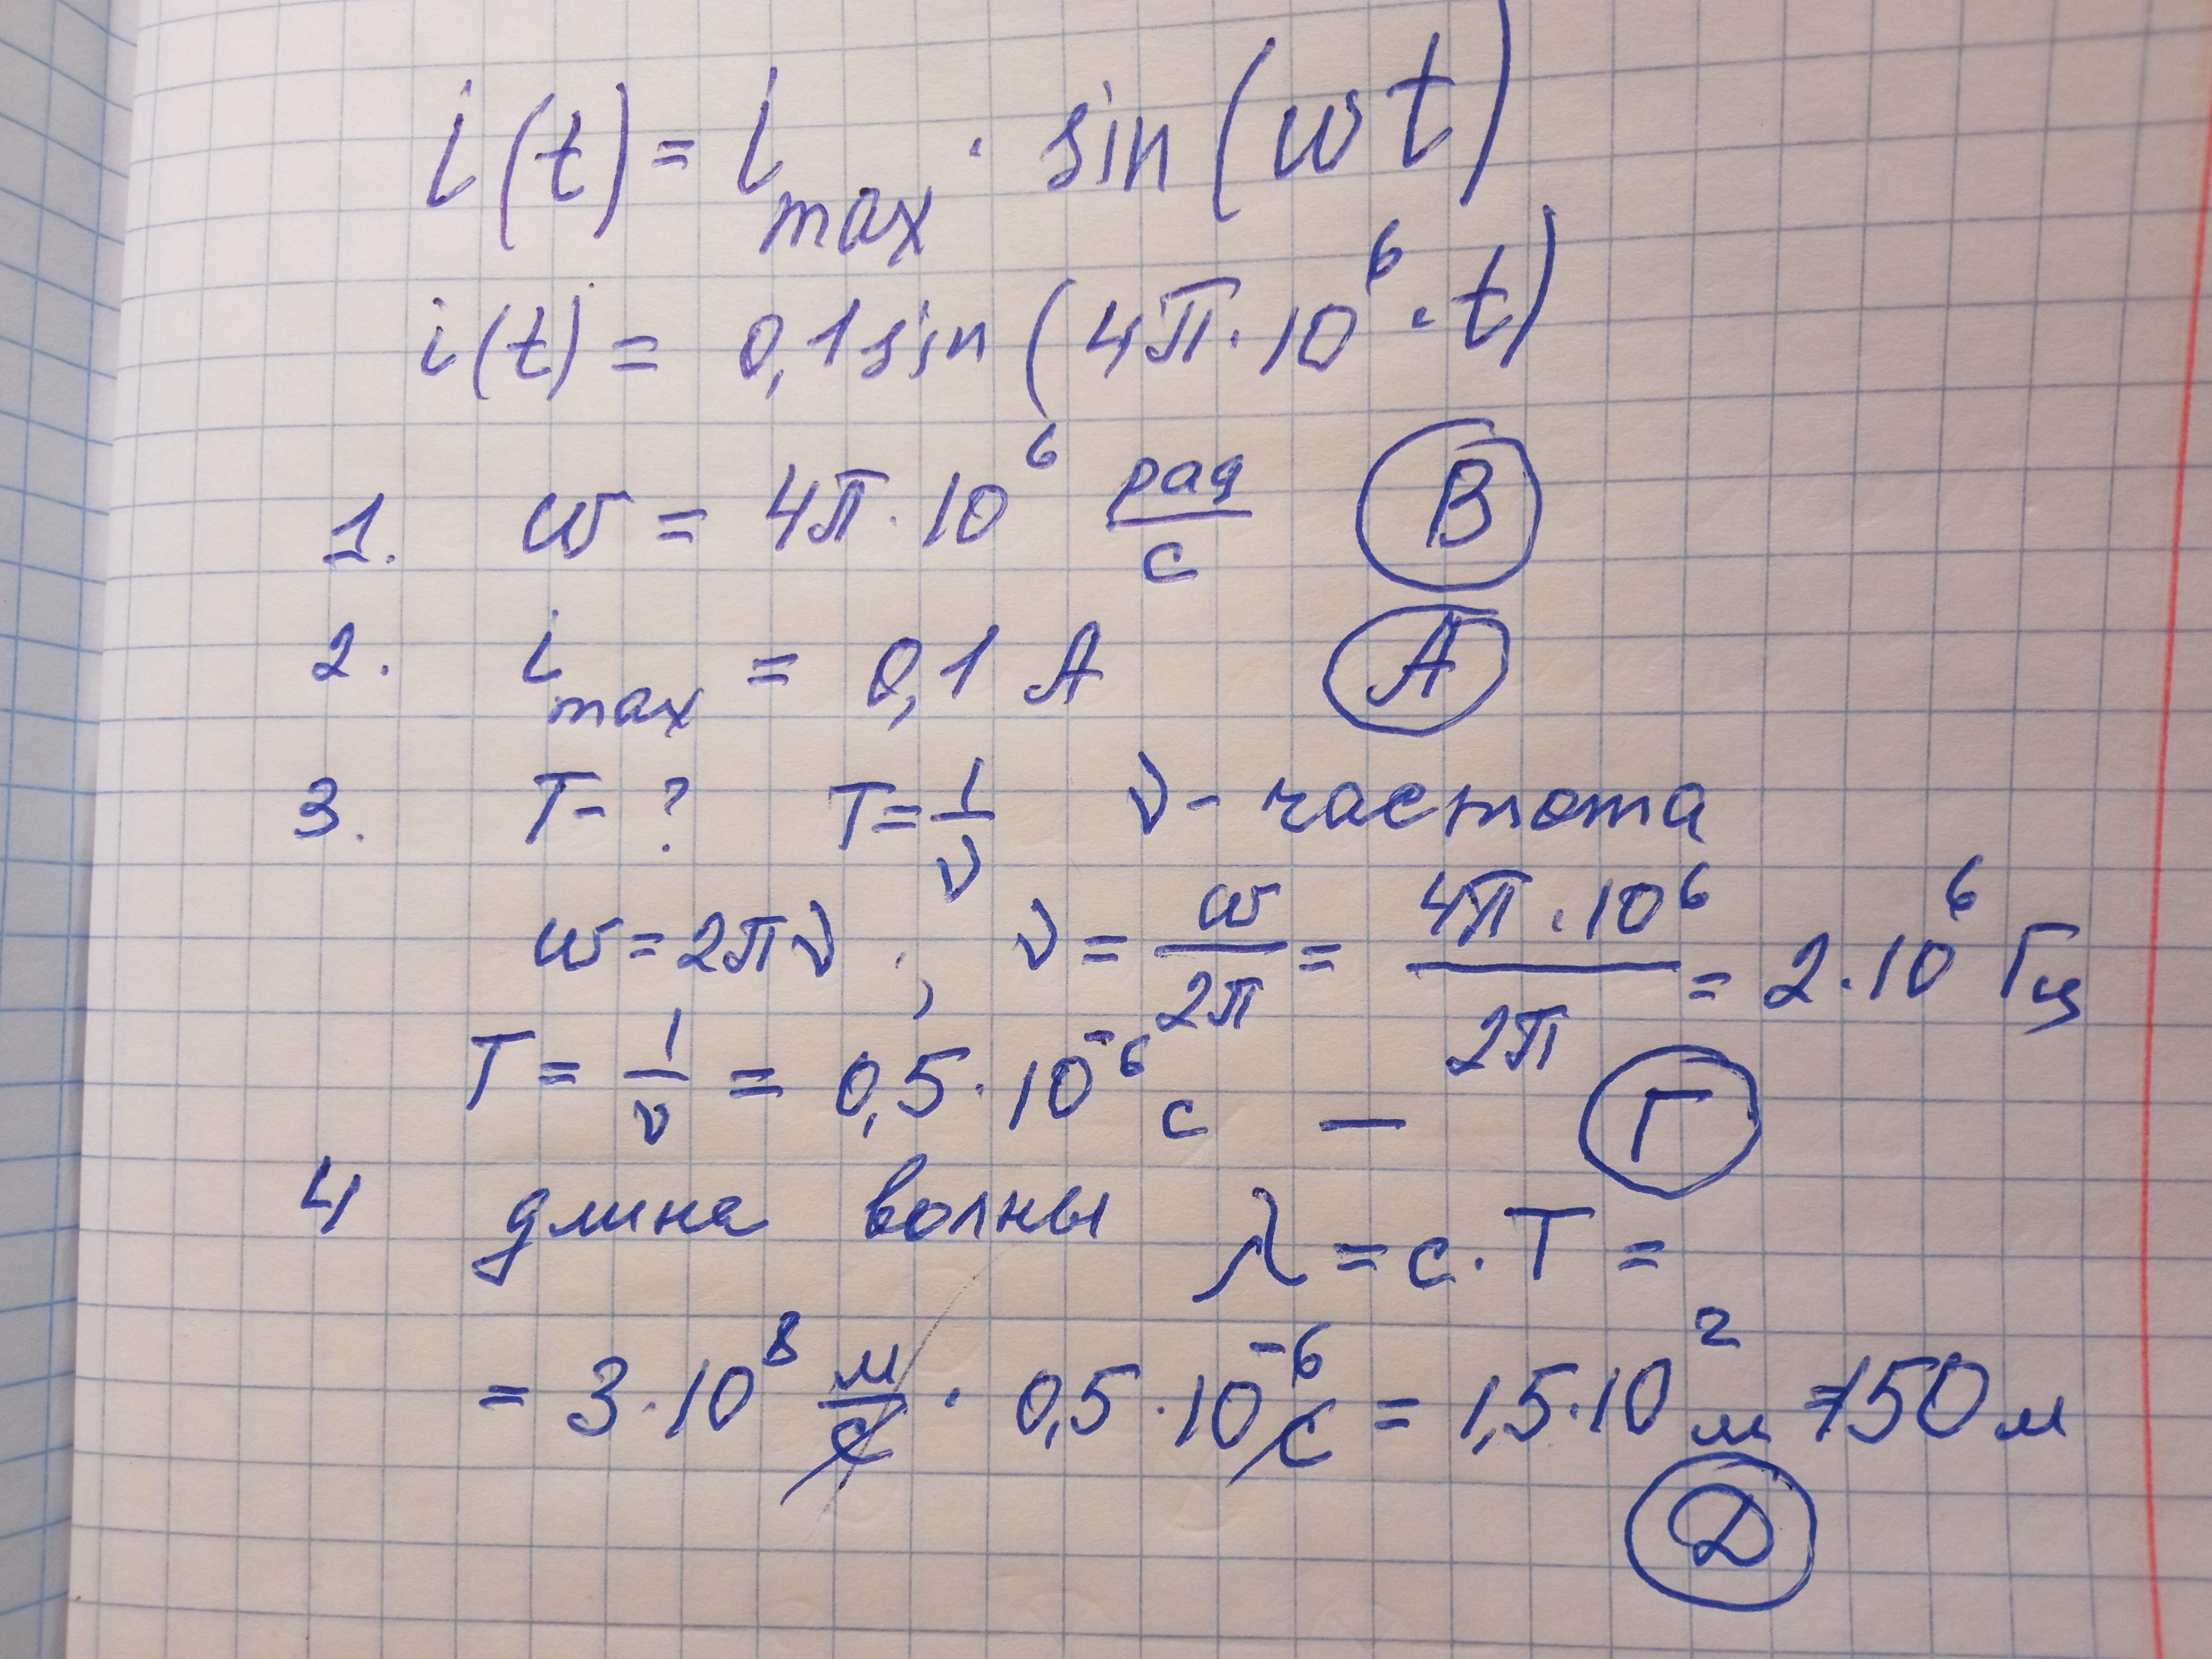 i(t) = i_max · sin(ωt)
i(t) = 0,1 sin(4π·10⁶·t)
1. ω = 4π·10⁶ рад/с В
2. i_max = 0,1 А А
3. T - ? T = 1/ν ν - частота
ω = 2πν ; ν = ω/2π = 4π·10⁶/2π = 2·10⁶ Гц
T = 1/ν = 0,5·10⁻⁶ с — Г
4 длина волны λ = c·T =
= 3·10⁸ м/с · 0,5·10⁻⁶ с = 1,5·10² м = 150 м
Д